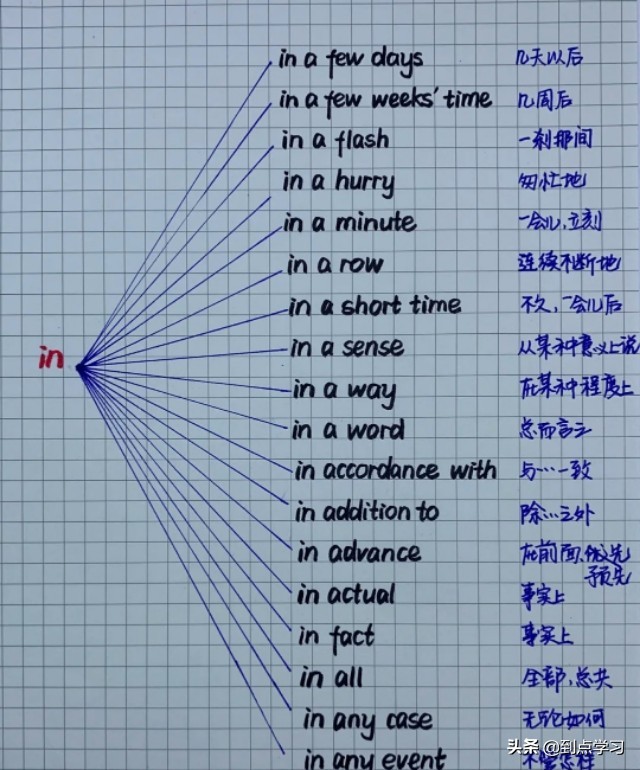 in a few days 几天以后
in a few weeks' time 几周后
in a flash 一刹那间
in a hurry 匆忙地
in a minute 一会儿,立刻
in a row 连续不断地
in a short time 不久,一会儿后
in a sense 从某种意义上说
in
in a way 在某种程度上
in a word 总而言之
in accordance with 与…一致
in addition to 除…之外
in advance 在前面,优先
预先
in actual 事实上
in fact 事实上
in all 全部,总共
in any case 无论如何
头条 @到点学习
in any event 不管怎样